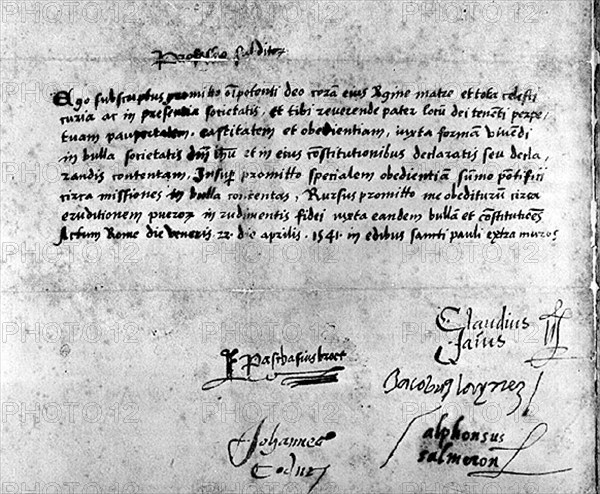 Professio subditor
Ego subscriptus promitto oipotenti deo cora eius Vgine matre et tota celesti
curia ac in presentia societatis, et tibi reverende pater locu dei teneti perpe-
tuam paupertatem, castitatem et obedientiam, iuxta formam vivedi
in bulla societatis dni ihu et in eius costitutionibus declaratis seu decla,
randis contentam. Insup promitto specialem obedientia sumo potifici
circa missiones in bulla contentas, Rursus promitto me obedituru circa
eruditionem pueror in rudimentis fidei iuxta eandem bulla et costitutioes
Actum Rome die veneris .22. die aprilis .1541. in edibus sancti pauli extra muros
Claudius
Jaius
P Paschasius broet
Jacobus laynez
Johannes
Codur
alphonsus
salmeron
PHOTO12